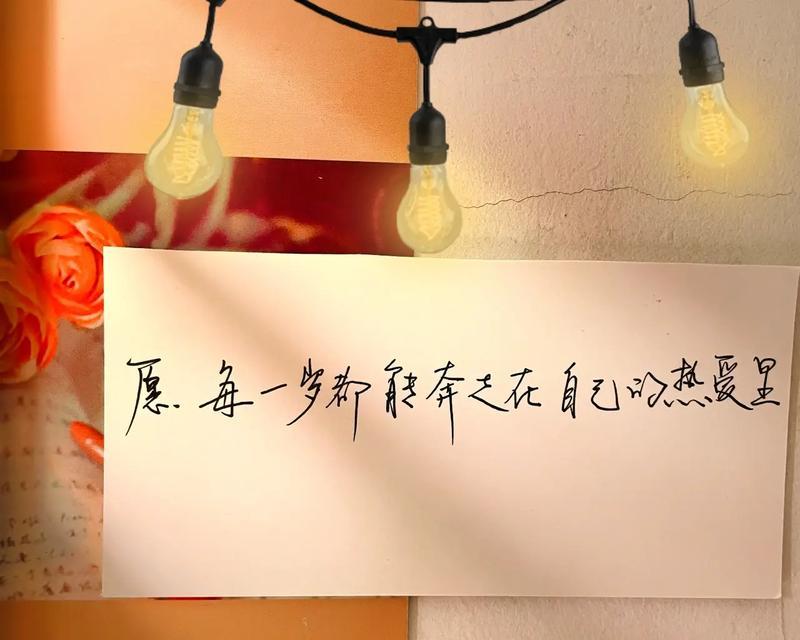 愿每一岁都能奔走在自己的热爱里